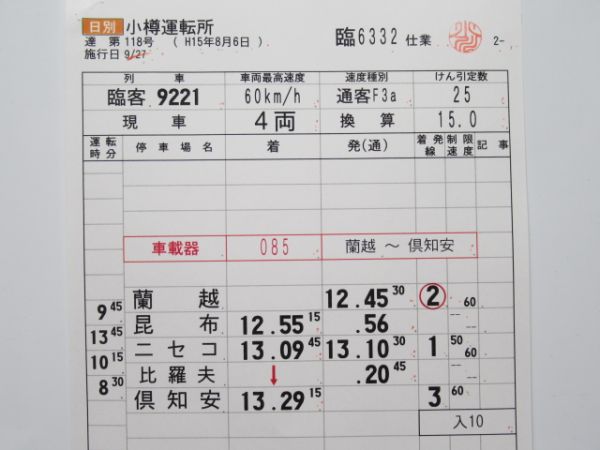 日別 小樽運転所
達 第 118号 ( H15年8月6日 )
臨6332 仕業
2-
施行日 9/27
列 車 車両最高速度 速度種別 けん引定数
臨客 9221 60km/h 通客F3a 25
現 車 4両 換 算 15.0
運転時分 停車場名 着 発(通) 着発線 制限速度 記事
車載器 085 蘭越 ~ 倶知安
蘭 越 12.45 30 ② 60
9 45
昆 布 12.55 15 .56 --
13 45
ニセコ 13.09 45 13.10 30 1 50 60
10 15
比羅夫 ↓ .20 45 -- --
8 30
倶知安 13.29 15 3 60
入10